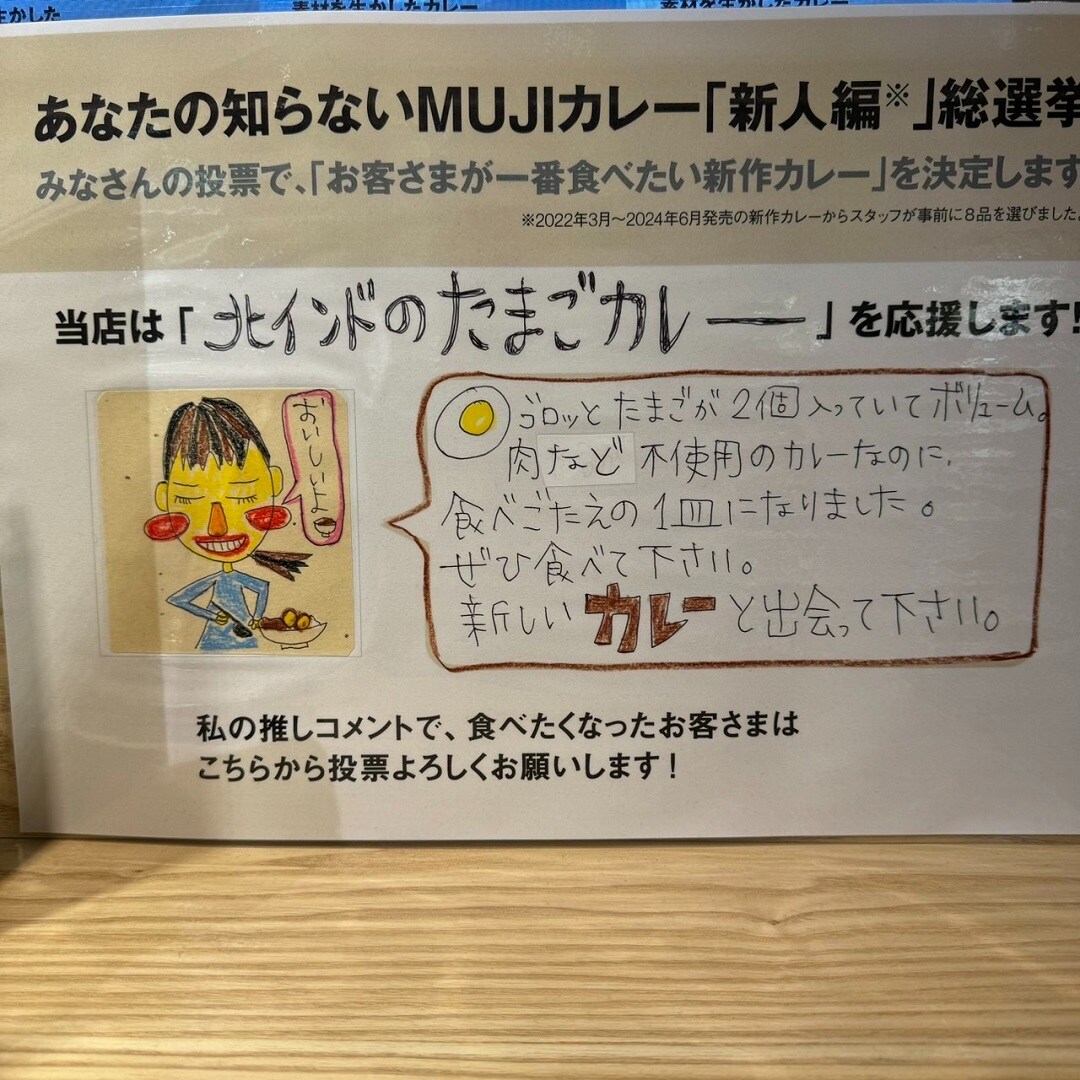 素材を生かしたカレー
素材を生かしたカレー
あなたの知らないMUJIカレー「新人編※」総選挙
みなさんの投票で、「お客さまが一番食べたい新作カレー」を決定します
※2022年3月～2024年6月発売の新作カレーからスタッフが事前に8品を選びました。
当店は「北インドのたまごカレー」を応援します!!
おいしいよ
ゴロッとたまごが2個入っていてボリューム。
肉など不使用のカレーなのに、
食べごたえの1皿になりました。
ぜひ食べて下さい。
新しいカレーと出会って下さい。
私の推しコメントで、食べたくなったお客さまは
こちらから投票よろしくお願いします！